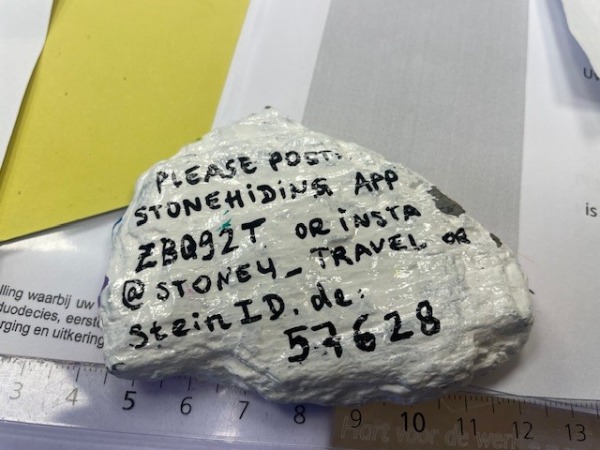 PLEASE POST:
STONEHIDING APP
ZBQ92T OR INSTA
@STONEY_TRAVEL OR
SteinID.de:
57628
lling waarbij uw
duodecies, eerst
rging en uitkering
is
3 4 5 6 7 8 9 10 11 12 13
Hart voor de werk